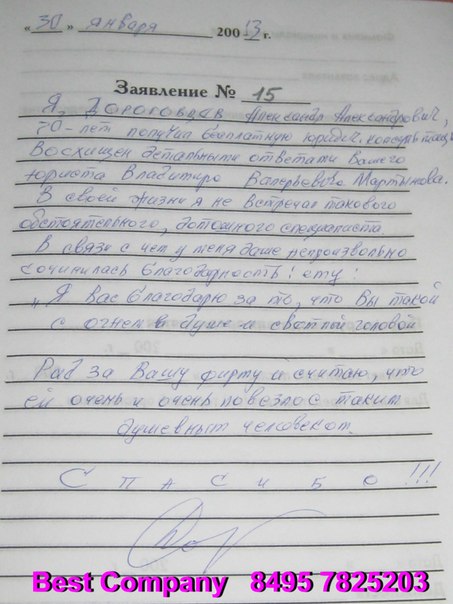 « 30 » января 20013 г.
Заявление № 15
Я, Дороговцев Александр Александрович,
70-лет получил бесплатную юридич. консультацию
Восхищен детальными ответами Вашего
юриста Владимира Валерьевича Мартынова.
В своей жизни я не встречал такового
обстоятельного, дотошного специалиста
В связи с чем у меня даже непроизвольно
сочинилась благодарность! ему:
„Я Вас благодарю за то, что Вы такой
с огнем в душе и светлой головой
Рад за Вашу фирму и считаю, что
ей очень и очень повезло с таким
душевным человеком.
С п а с и б о !!!
Best Company 8495 7825203